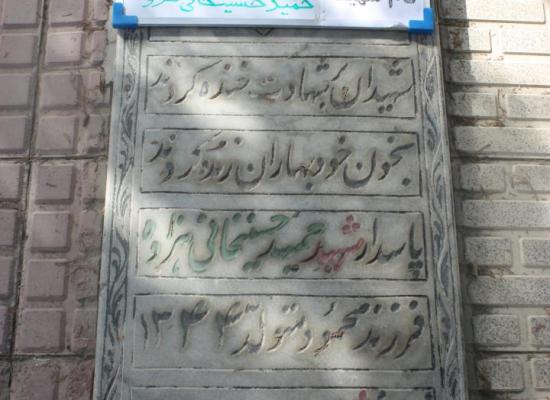 حمید حسینخانی هزاوه
شهیدان بر شهادت خنده کردند
بخون خود بهاران زنده کردند
پاسدار شهید حمید حسینخانی هزاوه
فرزند محمود متولد ۱۳۴۴